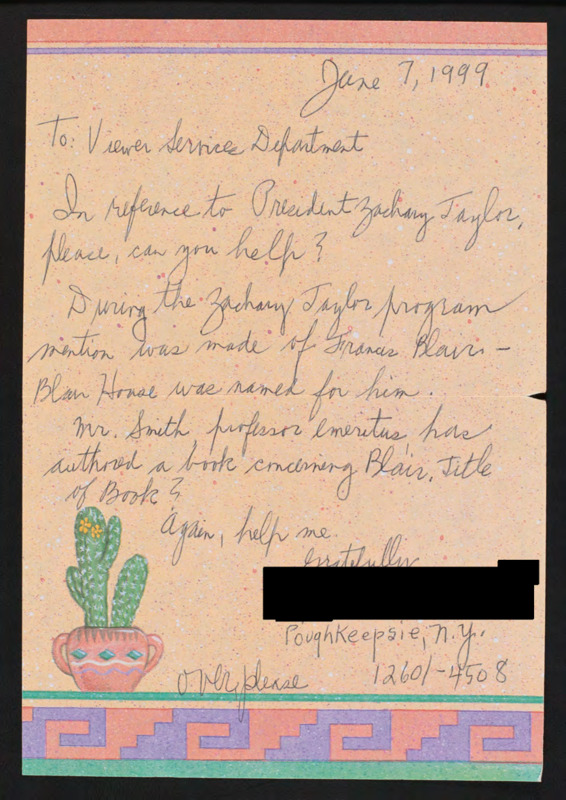 June 7, 1999
To: Viewer Service Department
In reference to President Zachary Taylor,
please, can you help?
During the Zachary Taylor program
mention was made of Francis Blair -
Blair House was named for him.
Mr. Smith, professor emeritus, has
authored a book concerning Blair. Title
of Book?
Again, help me.
Gratefully
Poughkeepsie, N.Y.
12601-4508
over, please